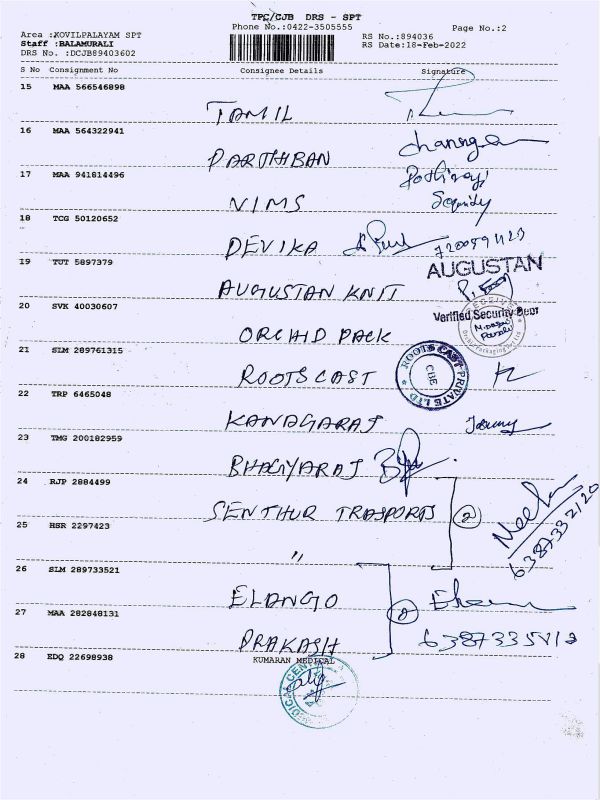 TPC/CJB DRS - SPT
Phone No.:0422-3505555
Page No.:2
Area :KOVILPALAYAM SPT
RS No.:894036
Staff :BALAMURALI
RS Date:18-Feb-2022
DRS No. :DCJB89403602
S No Consignment No Consignee Details Signature
15 MAA 566546898
TAMIL
16 MAA 564322941
PARTHBAN
17 MAA 941814496
VIMS
Security
18 TCG 50120652
DEVIKA
19 TUT 5897379
AUGUSTAN
AUGUSTAN KNIT
20 SVK 40030607
Verified Security Dept
RECEIVED
ORCHID PACK
21 SLM 289761315
ROOTS CAST PRIVATE LTD
CBE
ROOTS CAST
22 TRP 6465048
KANAGARAJ
23 TMG 200182959
BHAGYARAJ
24 RJP 2884499
SENTHUR TRASPORTS
2
25 HSR 2297423
"
26 SLM 289733521
ELANGO
27 MAA 282848131
PRAKASH
28 EDQ 22698938
KUMARAN MEDICAL
MEDICAL CENT